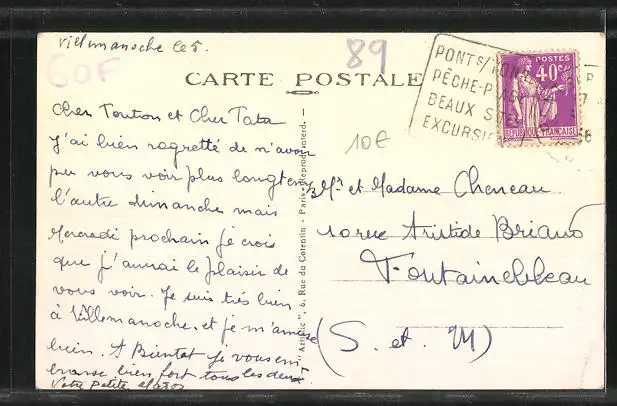 Villmanoche le 5.
60F
89
CARTE POSTALE
PONTS/YONNE
PÊCHE-P
BEAUX S
EXCURSI
POSTES
40c
REPUBLIQUE FRANÇAISE
10€
Cher Tonton et Cher Tata
J'ai bien regretté de n'avoir
pu vous voir plus longtemps
l'autre dimanche mais
Mercredi prochain je crois
que j'aurai le plaisir de
vous voir. Je suis très bien
à Villemanoche. et je m'amuse
bien. A Bientot je vous em
brasse bien fort tous les deux
Votre petite
"Artistic", 6, Rue du Cotentin - Paris - Reprod. interd.
Mr et Madame Cheneau
10 rue Aristide Briand
Fontainebleau
(S. et M)